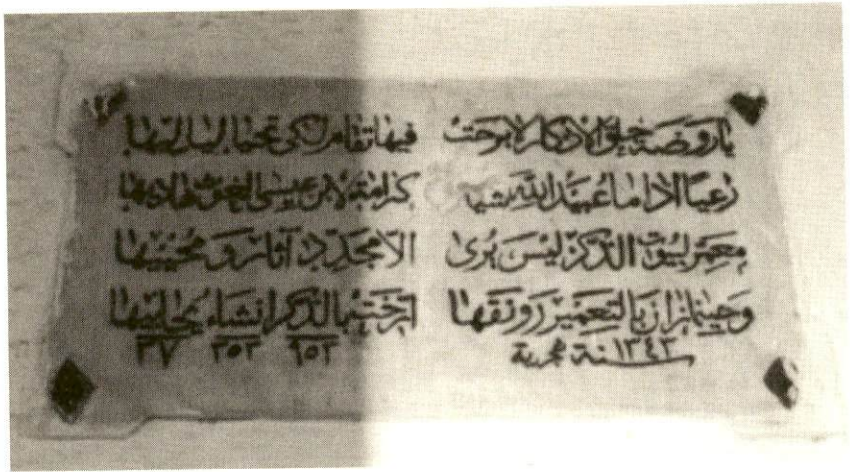 يا روضة حلق الاذكار لا برحت فيها تقام لكي تحيا لياليها
رعيا اذا ما عبيد الله كرامة لابن عيسى الغوث هاديها
معمر لبيوت الذكر ليس يرى الا مجدد آثار و محييها
وحينما زان بالتعمير رونقها ارختها بالذكر انشاء
سنة ١٣٤٣ هجرية ٩٥٣ ٣٥٣ ٣٧